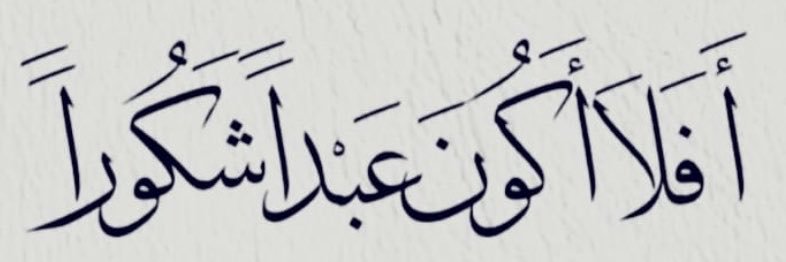 أَفَلَا أَكُونَ عَبْداً شَكُوراً